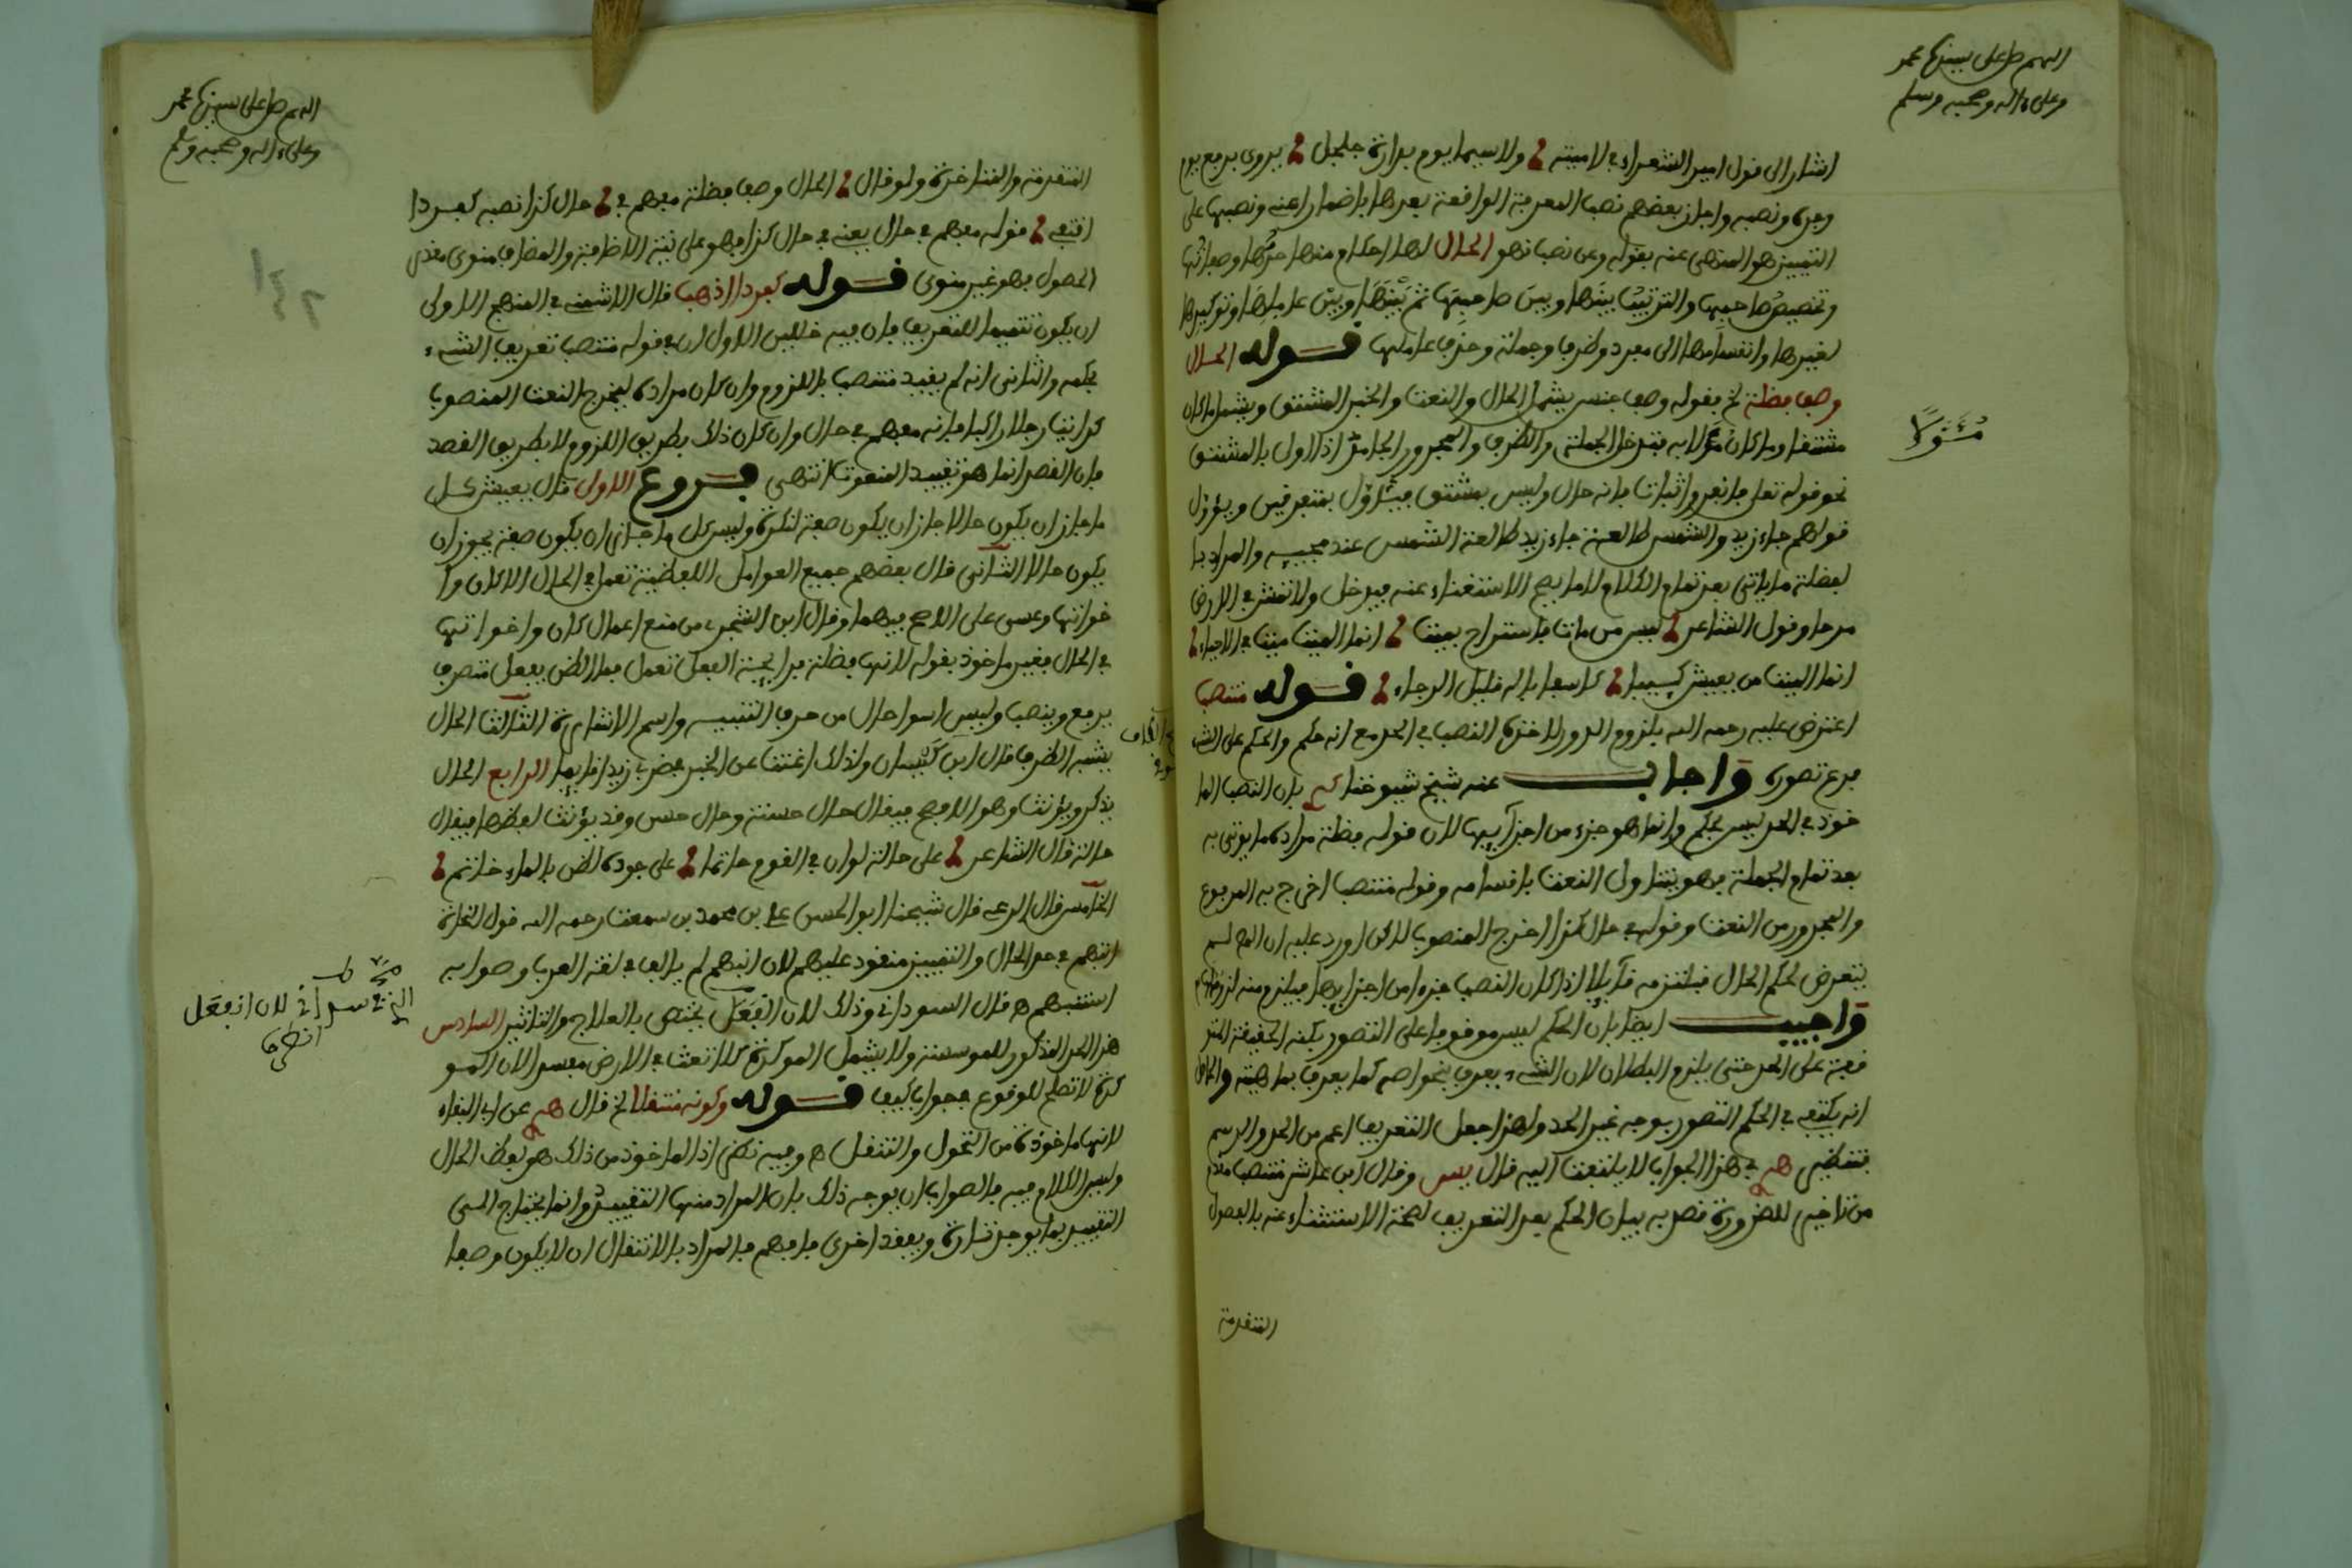 اللهم صل على سيدنا محمد
وعلى ءاله وصحبه وسلم
اشار الى قول امير الشعراء في لاميته ولا سيما يوم بدارة جلجل يروى برفع يوم
وجره ونصبه واجاز بعضهم نصب المعرفة الواقعة بعدها باضمار اعني ونصبها على
التمييز هو المنهى عنه بقوله وعن نصب نهو الحال لها احكام منها حدها وصفاتها
وتخصيص صاحبها والترتيب بينها وبين صاحبها ثم بينها وبين عاملها وتوكيدها
لغيرها وانقسامها الى مفرد وظرف وجملة وحذف عاملها قوله الحال
وصف فضلة الخ فقوله وصف جنس يشمل الحال والنعت والخبر المشتق ويشمل ما كان
مشتقا وما كان مؤلا به فتدخل الجملة والظرف والمجرور والجامد اذا اول بالمشتق
نحو قوله تعلى فانفروا ثبات فانه حال وليس بمشتق فيتاول بمتفرقين ويؤول
قولهم جاء زيد والشمس طالعة جاء زيد طالعة الشمس عند مجييه والمراد با
لفضلة ما ياتي بعد تمام الكلام لا ما يصح الاستغناء عنه فيدخل ولا تمش في الارض
مرحا وقول الشاعر ليس من مات فاستراح بميت انما الميت ميت الاحياء
انما الميت من يعيش كييبا كاسفا باله قليل الرجاء قوله منتصب
اعترض عليه رحمه الله بلزوم الدور لاخذه النصب في الحد مع انه حكم والحكم على الشيء
فرع تصوره واجاب عنه شيخ شيوخنا بان النصب الما
خوذ في الحد ليس بحكم وانما هو جزء من اجزايها لان قوله فضلة مراده ما يوتى به
بعد تمام الجملة فهو يتناول النعت باقسامه وقوله منتصب اخرج به المرفوع
والمجرور من النعت وقوله في حال كذا اخرج المنصوب لاكن اورد عليه ان المص لم
يتعرض لحكم الحال فيلتزمه قايلا اذا كان النصب جزءا من اجزايها فيلزم منه
واجيب ايضا بان الحكم ليس موقوفا على التصور بكنه الحقيقة المتو
قفة على الحد حتى يلزم البطلان لان الشيء يعرف بخواصه كما يعرف بماهيته والحاصل
انه يكتفي في الحكم التصور بوجه غير الحد ولهذا جعل التعريف اعم من الحد والرسم
فتنظير في هذا الجواب لا يلتفت اليه قال يس وقال ابن عاشر منتصب
من تاخير للضرورة قصد به بيان الحكم بعد التعريف لصحة الاستثناء عنه بالفصول
المتقدمة
مئولا
اللهم صل على سيدنا محمد
وعلى ءاله وصحبه وسلم
المتقدمة والمتاخرة ولو قال الحال وصف فضلة مفهم في حال كذا نصبه كفردا
اقتفي فقوله مفهم في حال يعني في حال كذا فهو على نية الاضافة والمضاف منوي
الحصول فهو غير منوي قوله كفردا اذهب قال الاشمني في المنهج الاولى
ان يكون تتميما للتعريف فان فيه خللين الاول ان في قوله منتصب تعريف الشيء
بحكمه والثاني انه لم يفيد منتصب باللزوم وان كان مراده ليخرج النعت المنصوب
كرايت رجلا راكبا فانه مفهم في حال وان كان ذلك بطريق اللزوم لا بطريق القصد
فان القصد انما هو تقييد المنعوت انتهى فروع الاول قال يعيش كل
ما جاز ان يكون حالا جاز ان يكون صفة لنكرة وليس كل ما جاز ان يكون صفة يجوز ان
يكون حالا الثاني قال بعضهم جميع العوامل اللفظية تعمل في الحال الا كان وا
خواتها وعسى على الاصح فيهما وقال ابن الشجري من منع اعمال كان واخواتها
في الحال فغير ماخوذ بقوله لانها فضلة فرايحة الفعل تعمل فيها الظن بفعل متصرف
يرفع وينصب وليس اسوا حال من حرف التنبيه واسم الاشارة الثالث الحال
يشبه الظرف قال ابن كيسان ولذلك اغنت عن الخبر في ضربي زيدا قايما الرابع الحال
يذكر ويؤنث وهو الافصح فيقال حال حسنة وحال حسن وقد يؤنث لفظها فيقال
حالة قال الشاعر على حالة لوان في القوم حاتما على جوده لظن بالماء حاتم
الخامس قال الرعي قال شيخنا ابو الحسن علي بن محمد بن سمعت رحمه الله قول النحاة
انبهم في حد الحال والتمييز منقود عليهم لان انبهم لم يالف في لغة العرب وصوابه
استبهم ه قال السوداني وذلك لان انفعل يختص بالعلاج والتاثير السادس
هذا الحد المذكور للموسسة ولا يشمل الموكدة كلا تعث في الارض مفسدا لان المو
كدة لا تصلح للوقوع في جواب كيف قوله وكونه منتقلا الخ قال عن ابي البقاء
لانها ماخوذة من التحول والتنقل ه وفيه نظر اذ الماخوذ من ذلك هو لفظ الحال
وليس الكلام فيه فالصواب ان يوجه ذلك بان المراد منها التقييد وانما يحتاج الى
التقييد بما يوجد تارة ويفقد اخرى فافهم فالمراد بالانتقال ان لا يكون وصفا
لان انفعل
انظرها